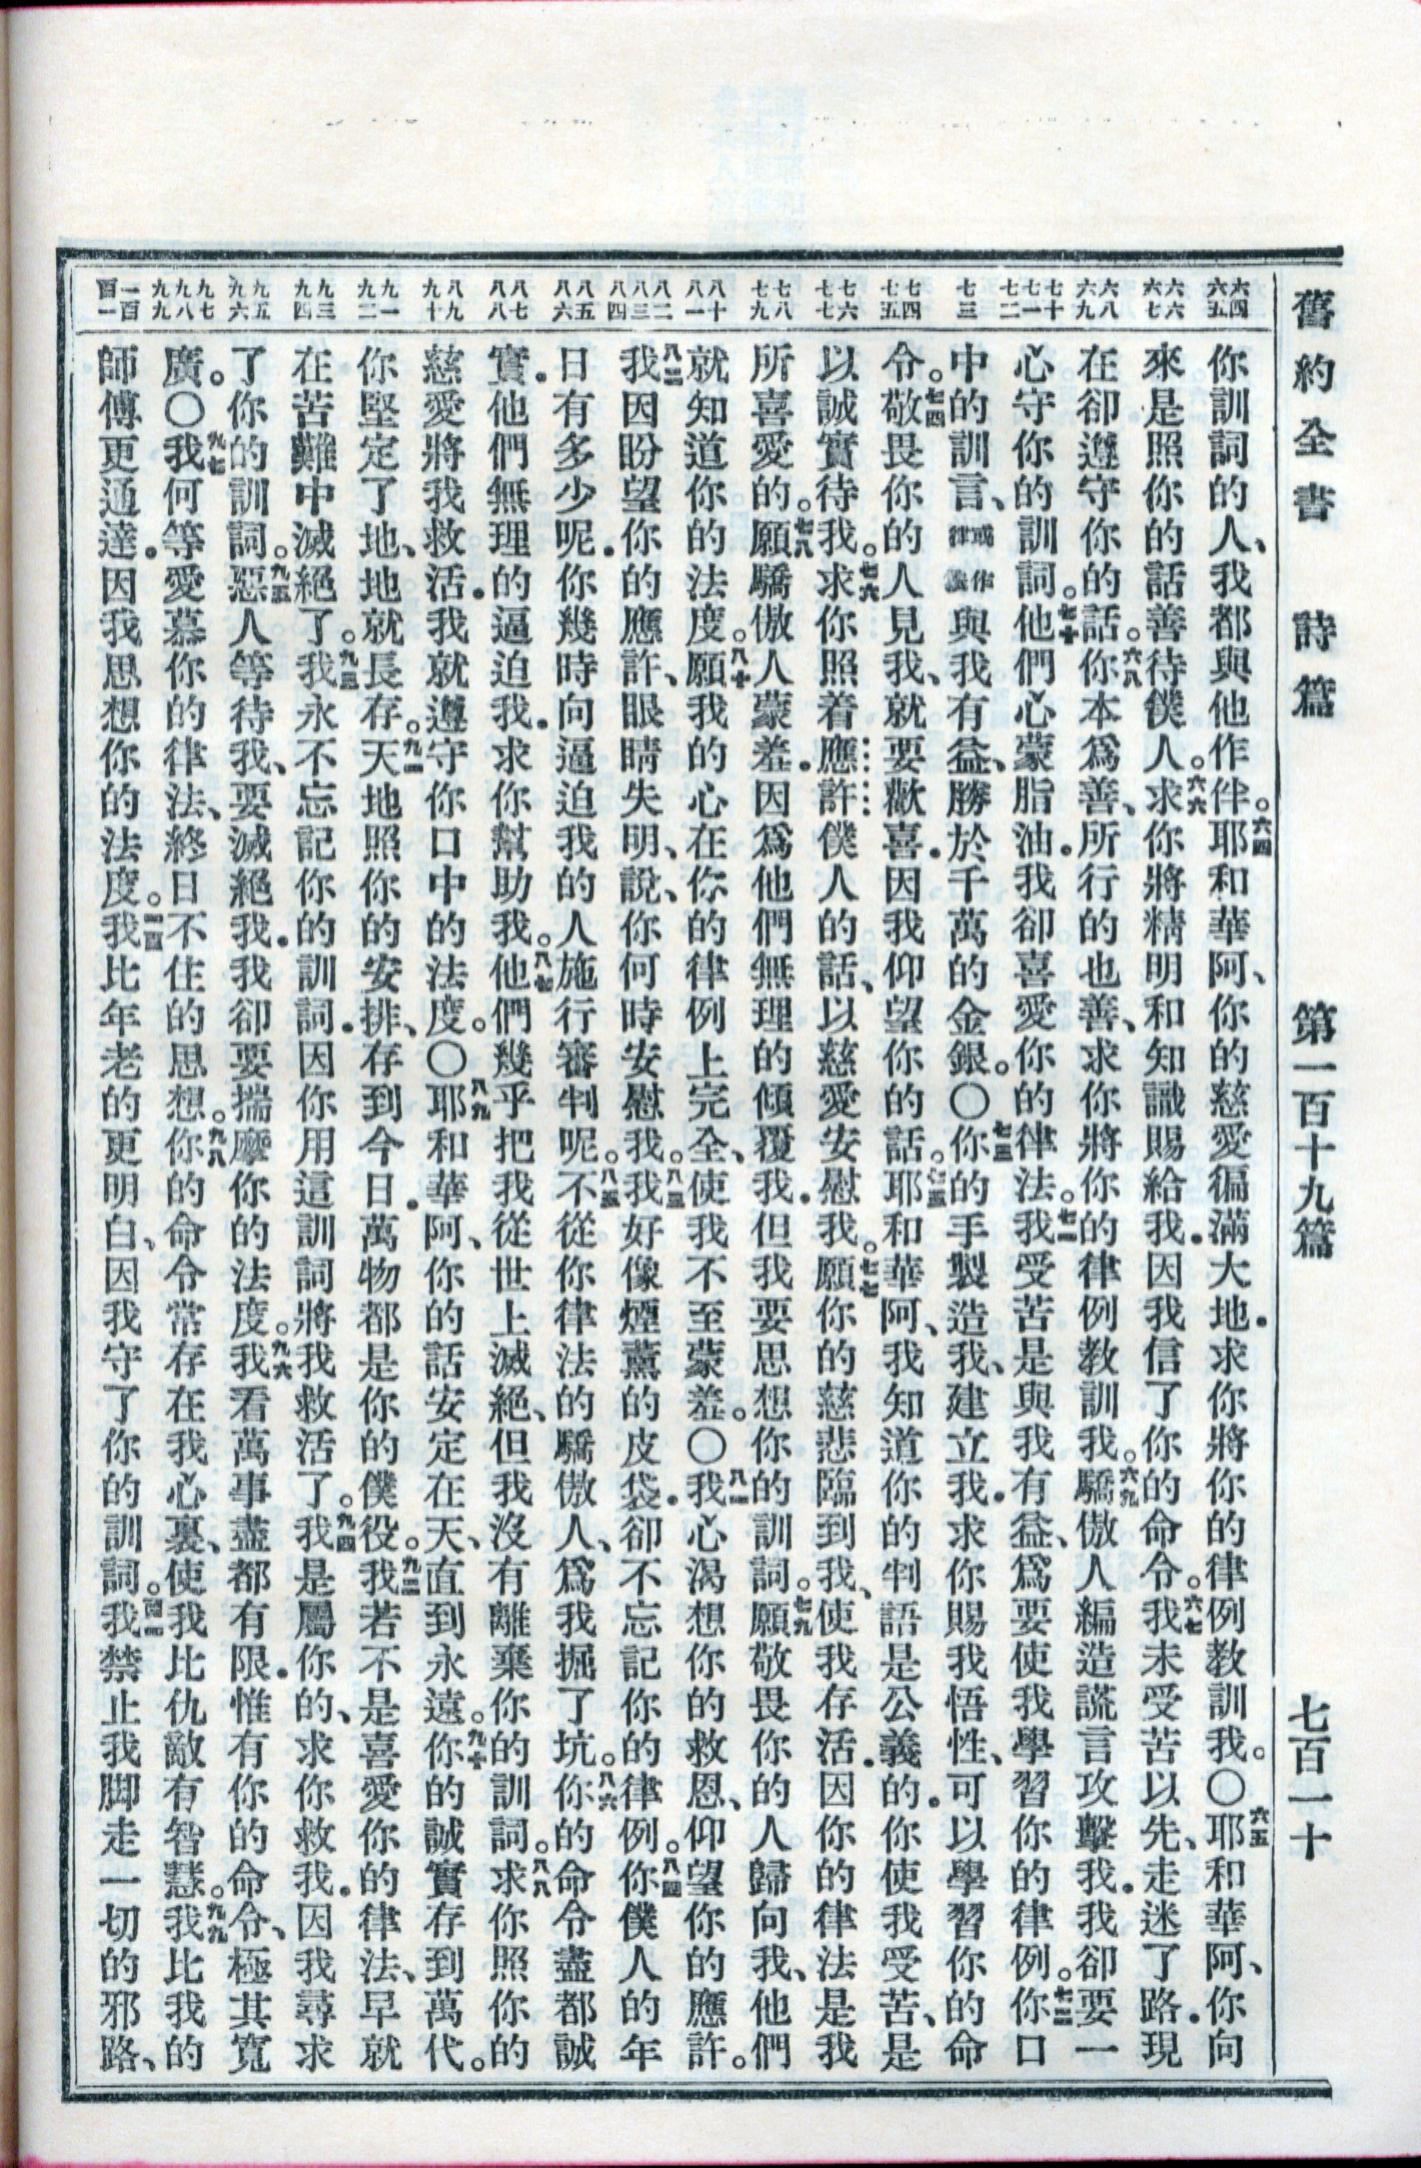 舊約全書 詩篇 第一百十九篇 七百一十
六四 六五
六六 六七
六八 六九
七十 七一 七二
七三
七四 七五
七六 七七
七八 七九
八十 八一
八二 八三 八四
八五 八六
八七 八八
八九 九十
九一 九二
九三 九四
九五 九六
九七 九八 九九
一百 百一
你訓詞的人、我都與他作伴。六四耶和華阿、你的慈愛徧滿大地.求你將你的律例教訓我。〇六五耶和華阿、你向
來是照你的話善待僕人。六六求你將精明和知識賜給我.因我信了你的命令。六七我未受苦以先、走迷了路.現
在卻遵守你的話。六八你本爲善、所行的也善、求你將你的律例教訓我。六九驕傲人編造謊言攻擊我.我卻要一
心守你的訓詞。七十他們心蒙脂油.我卻喜愛你的律法。七一我受苦是與我有益、爲要使我學習你的律例。七二你口
中的訓言、或作律法與我有益、勝於千萬的金銀。〇七三你的手製造我、建立我.求你賜我悟性、可以學習你的命
令。七四敬畏你的人見我、就要歡喜.因我仰望你的話。七五耶和華阿、我知道你的判語是公義的.你使我受苦、是
以誠實待我。七六求你照着應許僕人的話、以慈愛安慰我。七七願你的慈悲臨到我、使我存活.因你的律法是我
所喜愛的。七八願驕傲人蒙羞.因爲他們無理的傾覆我.但我要思想你的訓詞。七九願敬畏你的人歸向我、他們
就知道你的法度。八十願我的心在你的律例上完全、使我不至蒙羞。〇八一我心渴想你的救恩、仰望你的應許。
八二我因盼望你的應許、眼睛失明、說、你何時安慰我。八三我好像煙薰的皮袋.卻不忘記你的律例。八四你僕人的年
日有多少呢.你幾時向逼迫我的人施行審判呢。八五不從你律法的驕傲人、爲我掘了坑。八六你的命令盡都誠
實.他們無理的逼迫我.求你幫助我。八七他們幾乎把我從世上滅絕、但我沒有離棄你的訓詞。八八求你照你的
慈愛將我救活.我就遵守你口中的法度。〇八九耶和華阿、你的話安定在天、直到永遠。九十你的誠實存到萬代。
你堅定了地、地就長存。九一天地照你的安排、存到今日.萬物都是你的僕役。九二我若不是喜愛你的律法、早就
在苦難中滅絕了。九三我永不忘記你的訓詞.因你用這訓詞將我救活了。九四我是屬你的、求你救我.因我尋求
了你的訓詞。九五惡人等待我、要滅絕我.我卻要揣摩你的法度。九六我看萬事盡都有限.惟有你的命令、極其寬
廣。〇九七我何等愛慕你的律法、終日不住的思想。九八你的命令常存在我心裏、使我比仇敵有智慧。九九我比我的
師傅更通達.因我思想你的法度。一百我比年老的更明白、因我守了你的訓詞。百一我禁止我脚走一切的邪路、